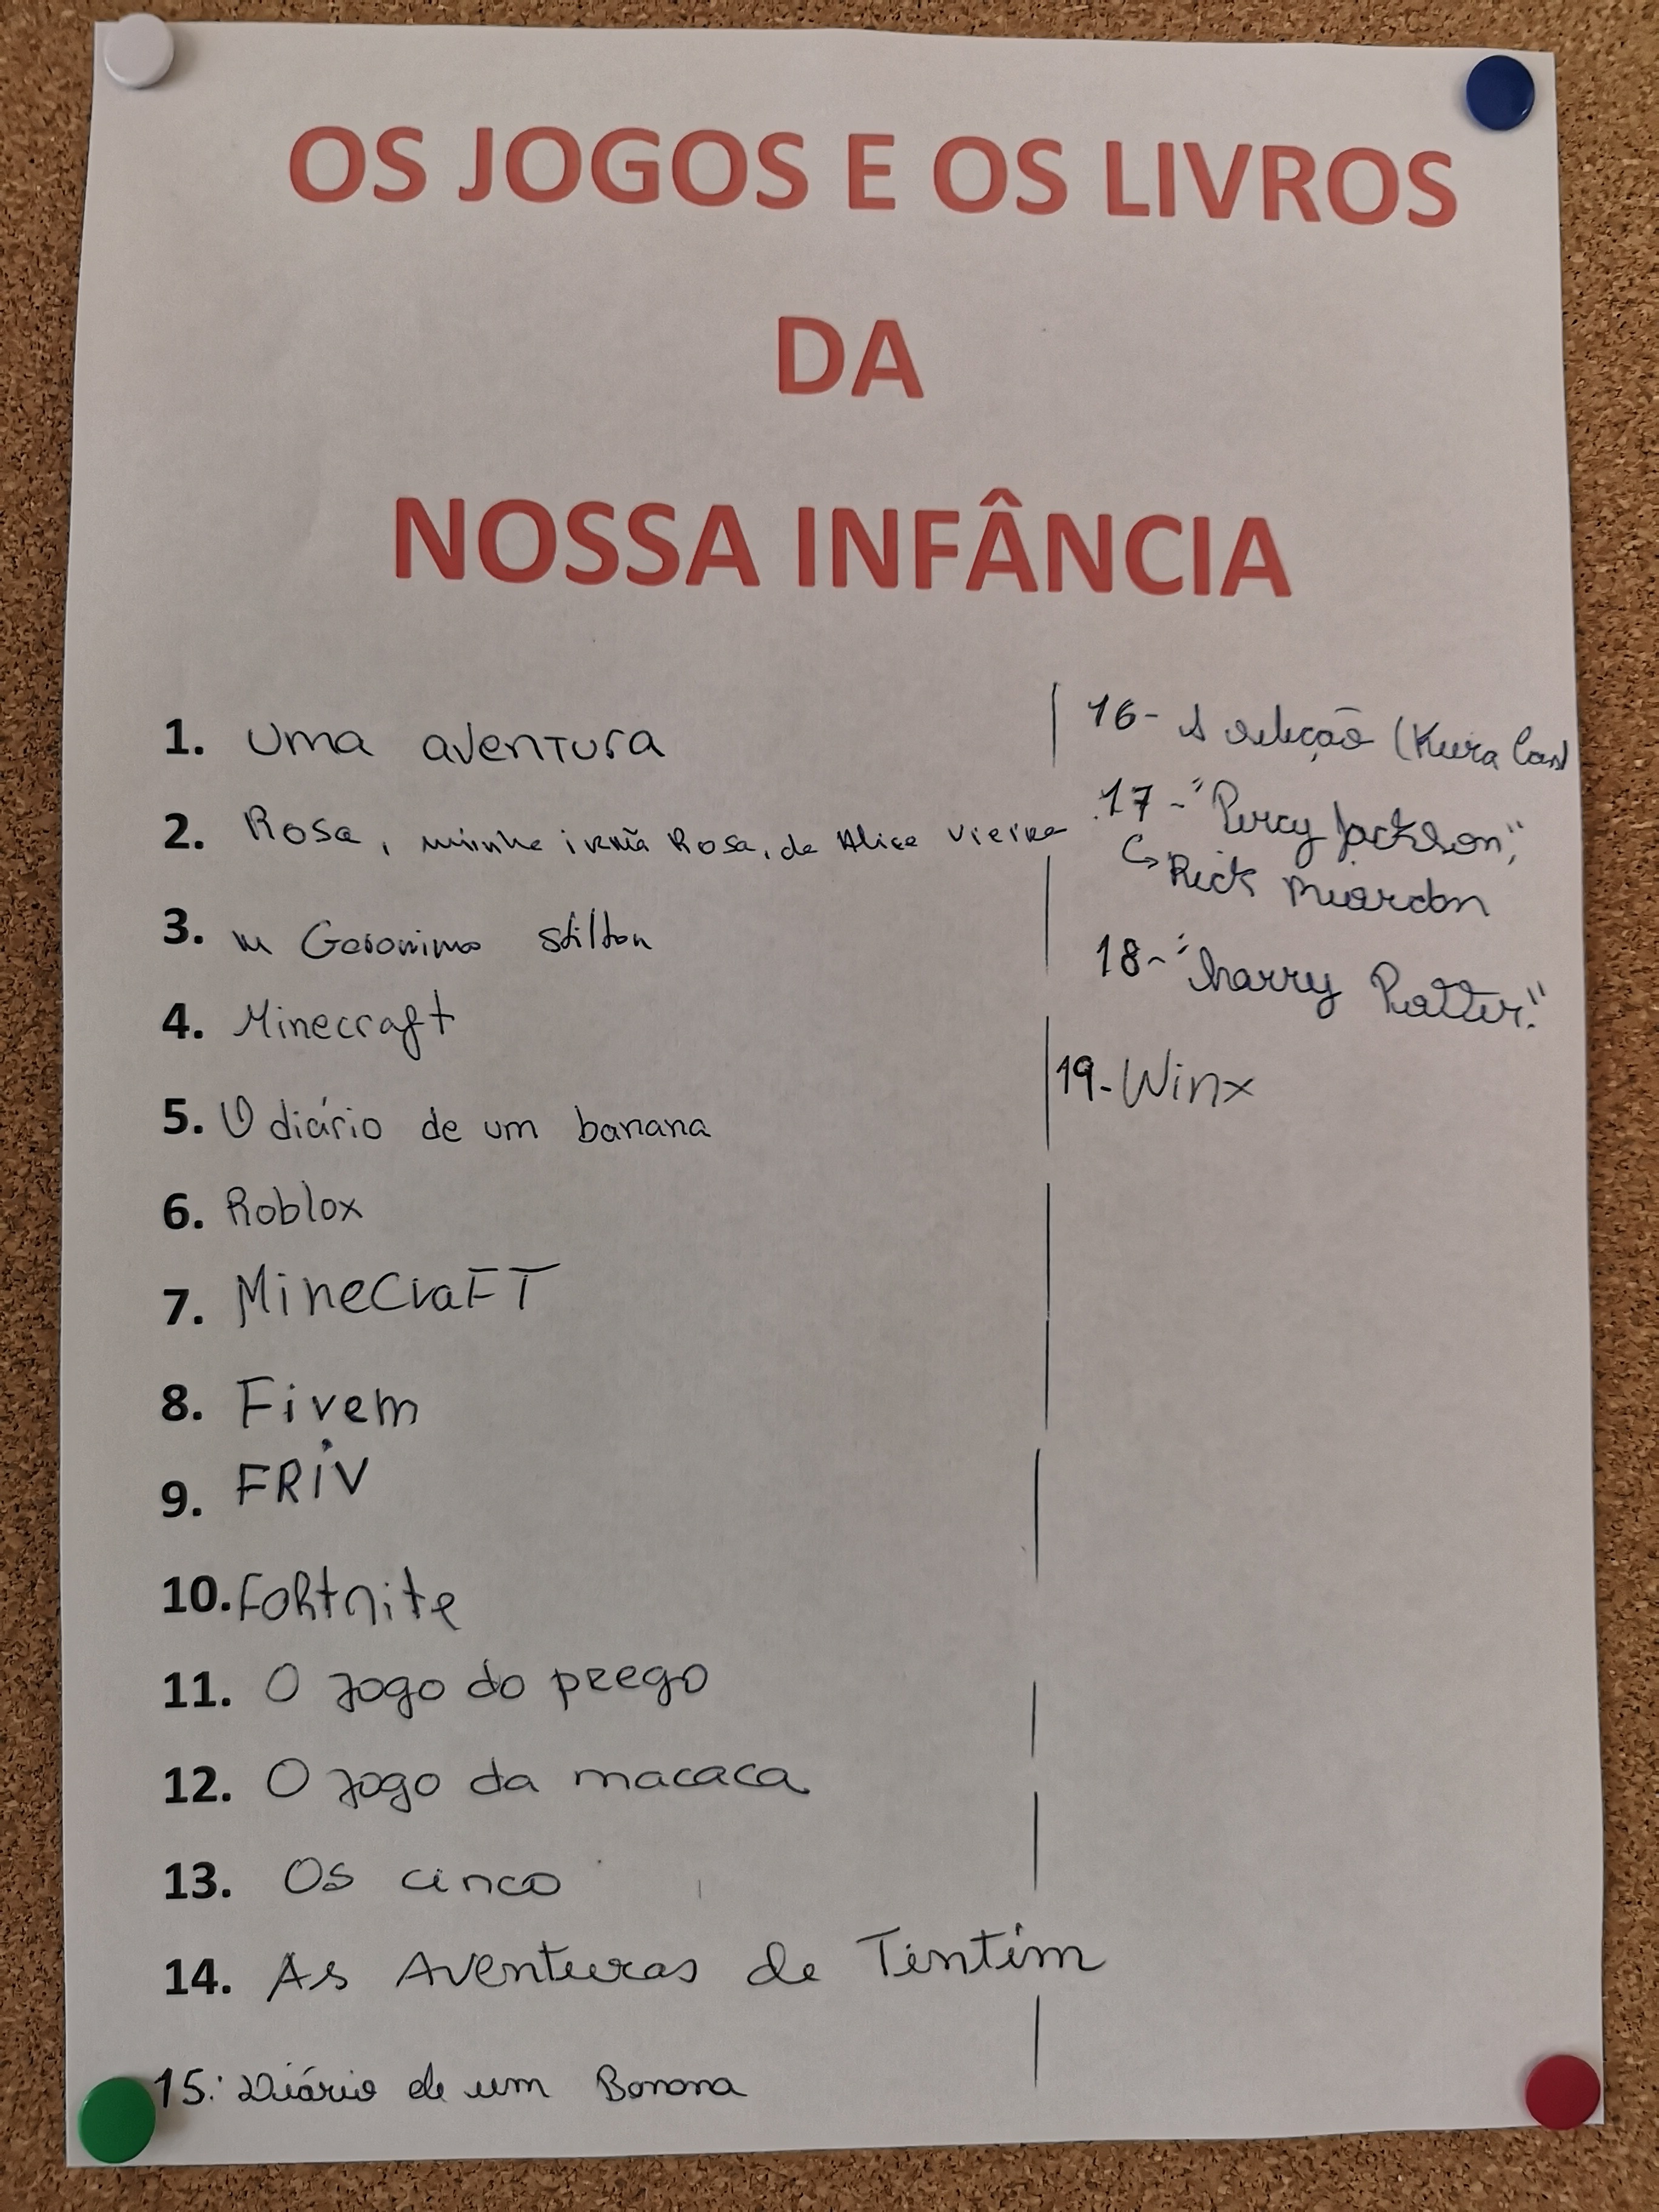 OS JOGOS E OS LIVROS
DA
NOSSA INFÂNCIA
1. Uma aventura
2. Rosa, minha irmã Rosa, de Alice Vieira
3. Geronimo Stilton
4. Minecraft
5. O diário de um banana
6. Roblox
7. MineCraFT
8. Fivem
9. FRiV
10. Fortnite
11. O Jogo do prego
12. O Jogo da macaca
13. Os cinco
14. As Aventuras de Tintim
15. Diário de um Banana
16- A seleção (Kiera Cass
17- "Percy Jackson",
↳ Rick
18- "harry Potter."
19- Winx